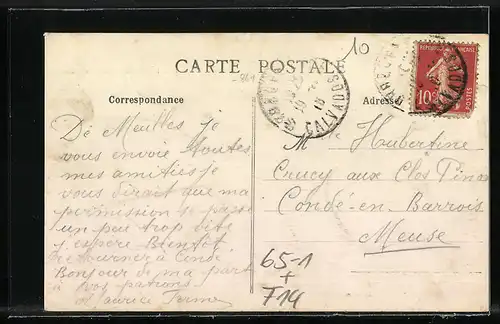 10
CARTE POSTALE
RÉPUBLIQUE FRANÇAISE
10
POSTES
CALVADOS
Correspondance
Adresse
De Meulles je
vous envoie toutes
mes amitiés je
vous dirait que ma
permission se passe
un peu trop vite
j espère Bientôt
retourner à Condé
Bonjour de ma part
à vos patrons
Maurice
Mlle Hubertine
Crucy aux Clos Pinas
Condé-en-Barrois
Meuse
65-1
+
F14